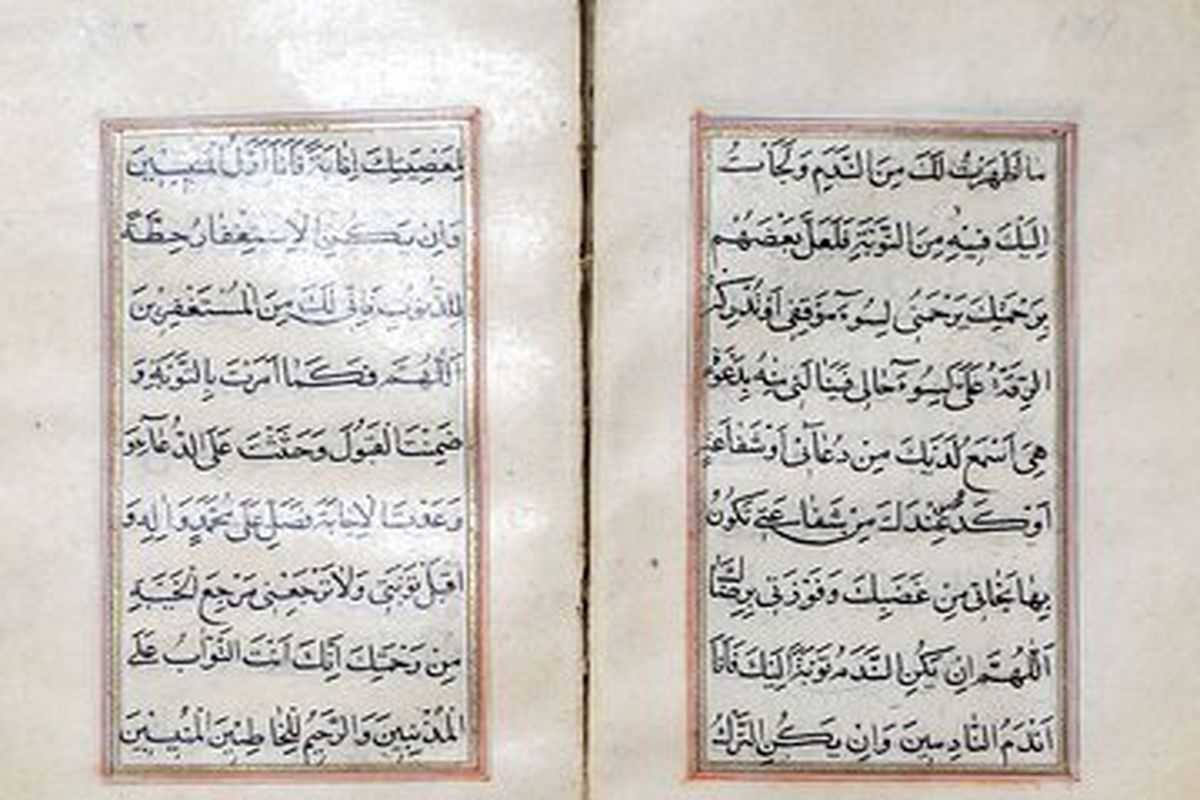 ما اظهرت لك من الندم ولجأت
اليك فيه من التوبة فلعل بعضهم
برحمتك يرحمني لسوء موقفي او تدركه
الرقة على لسوء حالي فينالني منه بدعوة
هي اسمع لديك من دعائي او شفاعة
اوكد عندك من شفاعتي تكون
بها نجاتي من غضبك وفوزتي برضاك
اللهم ان يكن الندم توبة اليك فانا
اندم النادمين وان يكن الترك
لمعصيتك انابة فانا اول المنيبين
وان يكن الاستغفار حطة
للذنوب فاني لك من المستغفرين
اللهم فكما امرت بالتوبة و
ضمنت القبول وحثثت على الدعاء و
وعدت الاجابة فصل على محمد واله و
اقبل توبتي ولا ترجعني مرجع الخيبة
من رحمتك انك انت التواب على
المذنبين والرحيم للخاطئين المنيبين